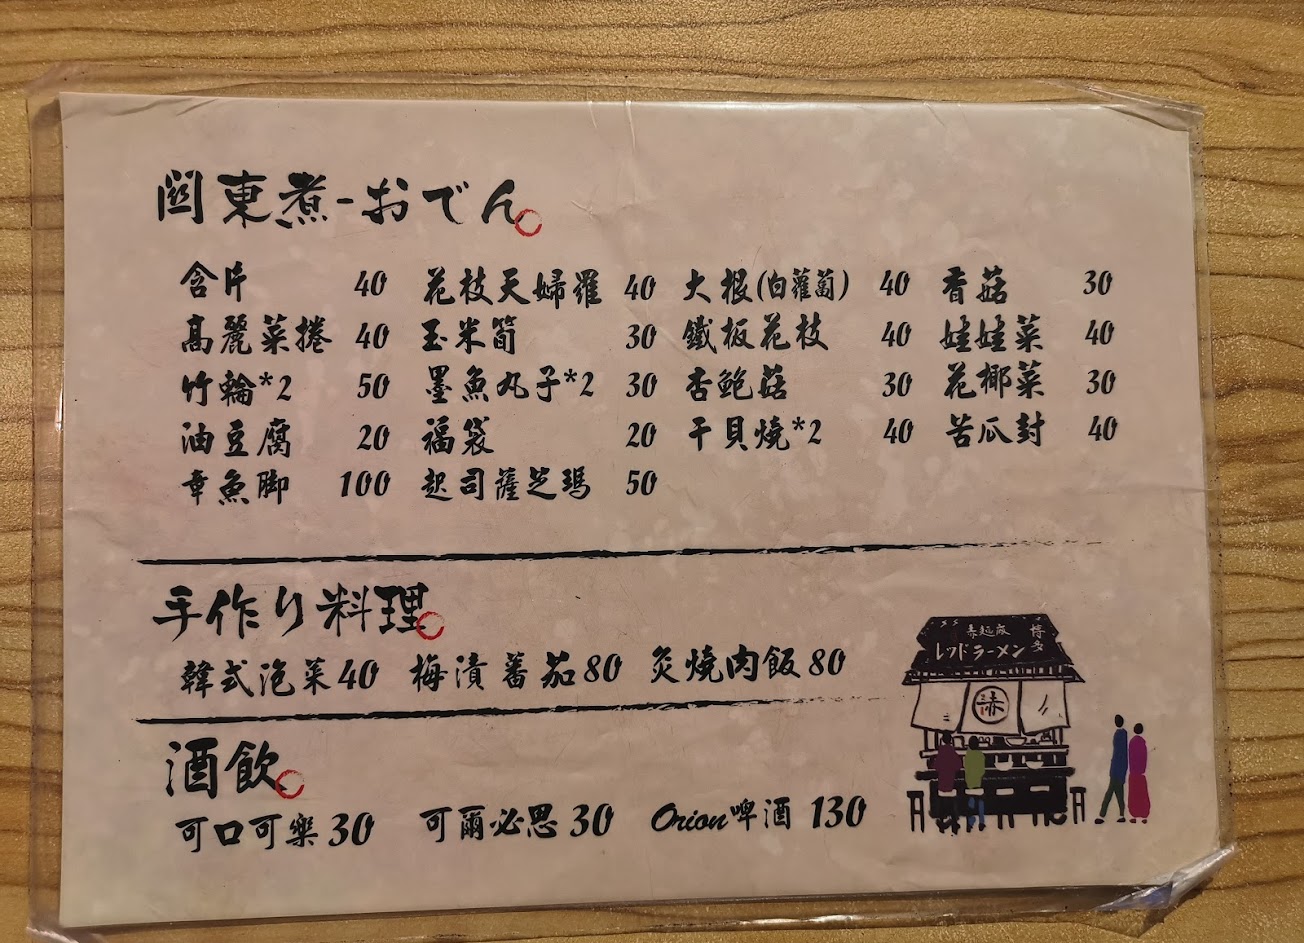 関東煮-おでん
含片 40 花枝天婦羅 40 大根(白蘿蔔) 40 香菇 30
高麗菜捲 40 玉米筍 30 鐵板花枝 40 娃娃菜 40
竹輪*2 50 墨魚丸子*2 30 杏鮑菇 30 花椰菜 30
油豆腐 20 福袋 20 干貝燒*2 40 苦瓜封 40
章魚脚 100 起司薩芝瑪 50
手作り料理
韓式泡菜 40 梅漬蕃茄 80 炙燒肉飯 80
赤麵廠 博多
レッドラーメン
赤
酒飲
可口可樂 30 可爾必思 30 Orion啤酒 130